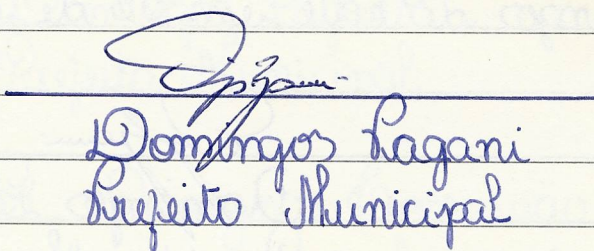 Domingos Pagani
Prefeito Municipal